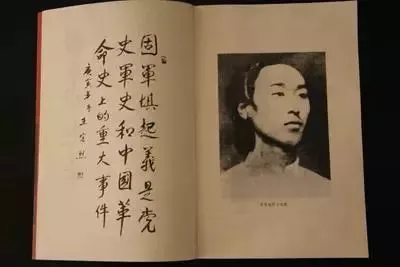 固軍埧起義是党
史軍史和中國革
命史上的重大事件
庚寅年 王定烈